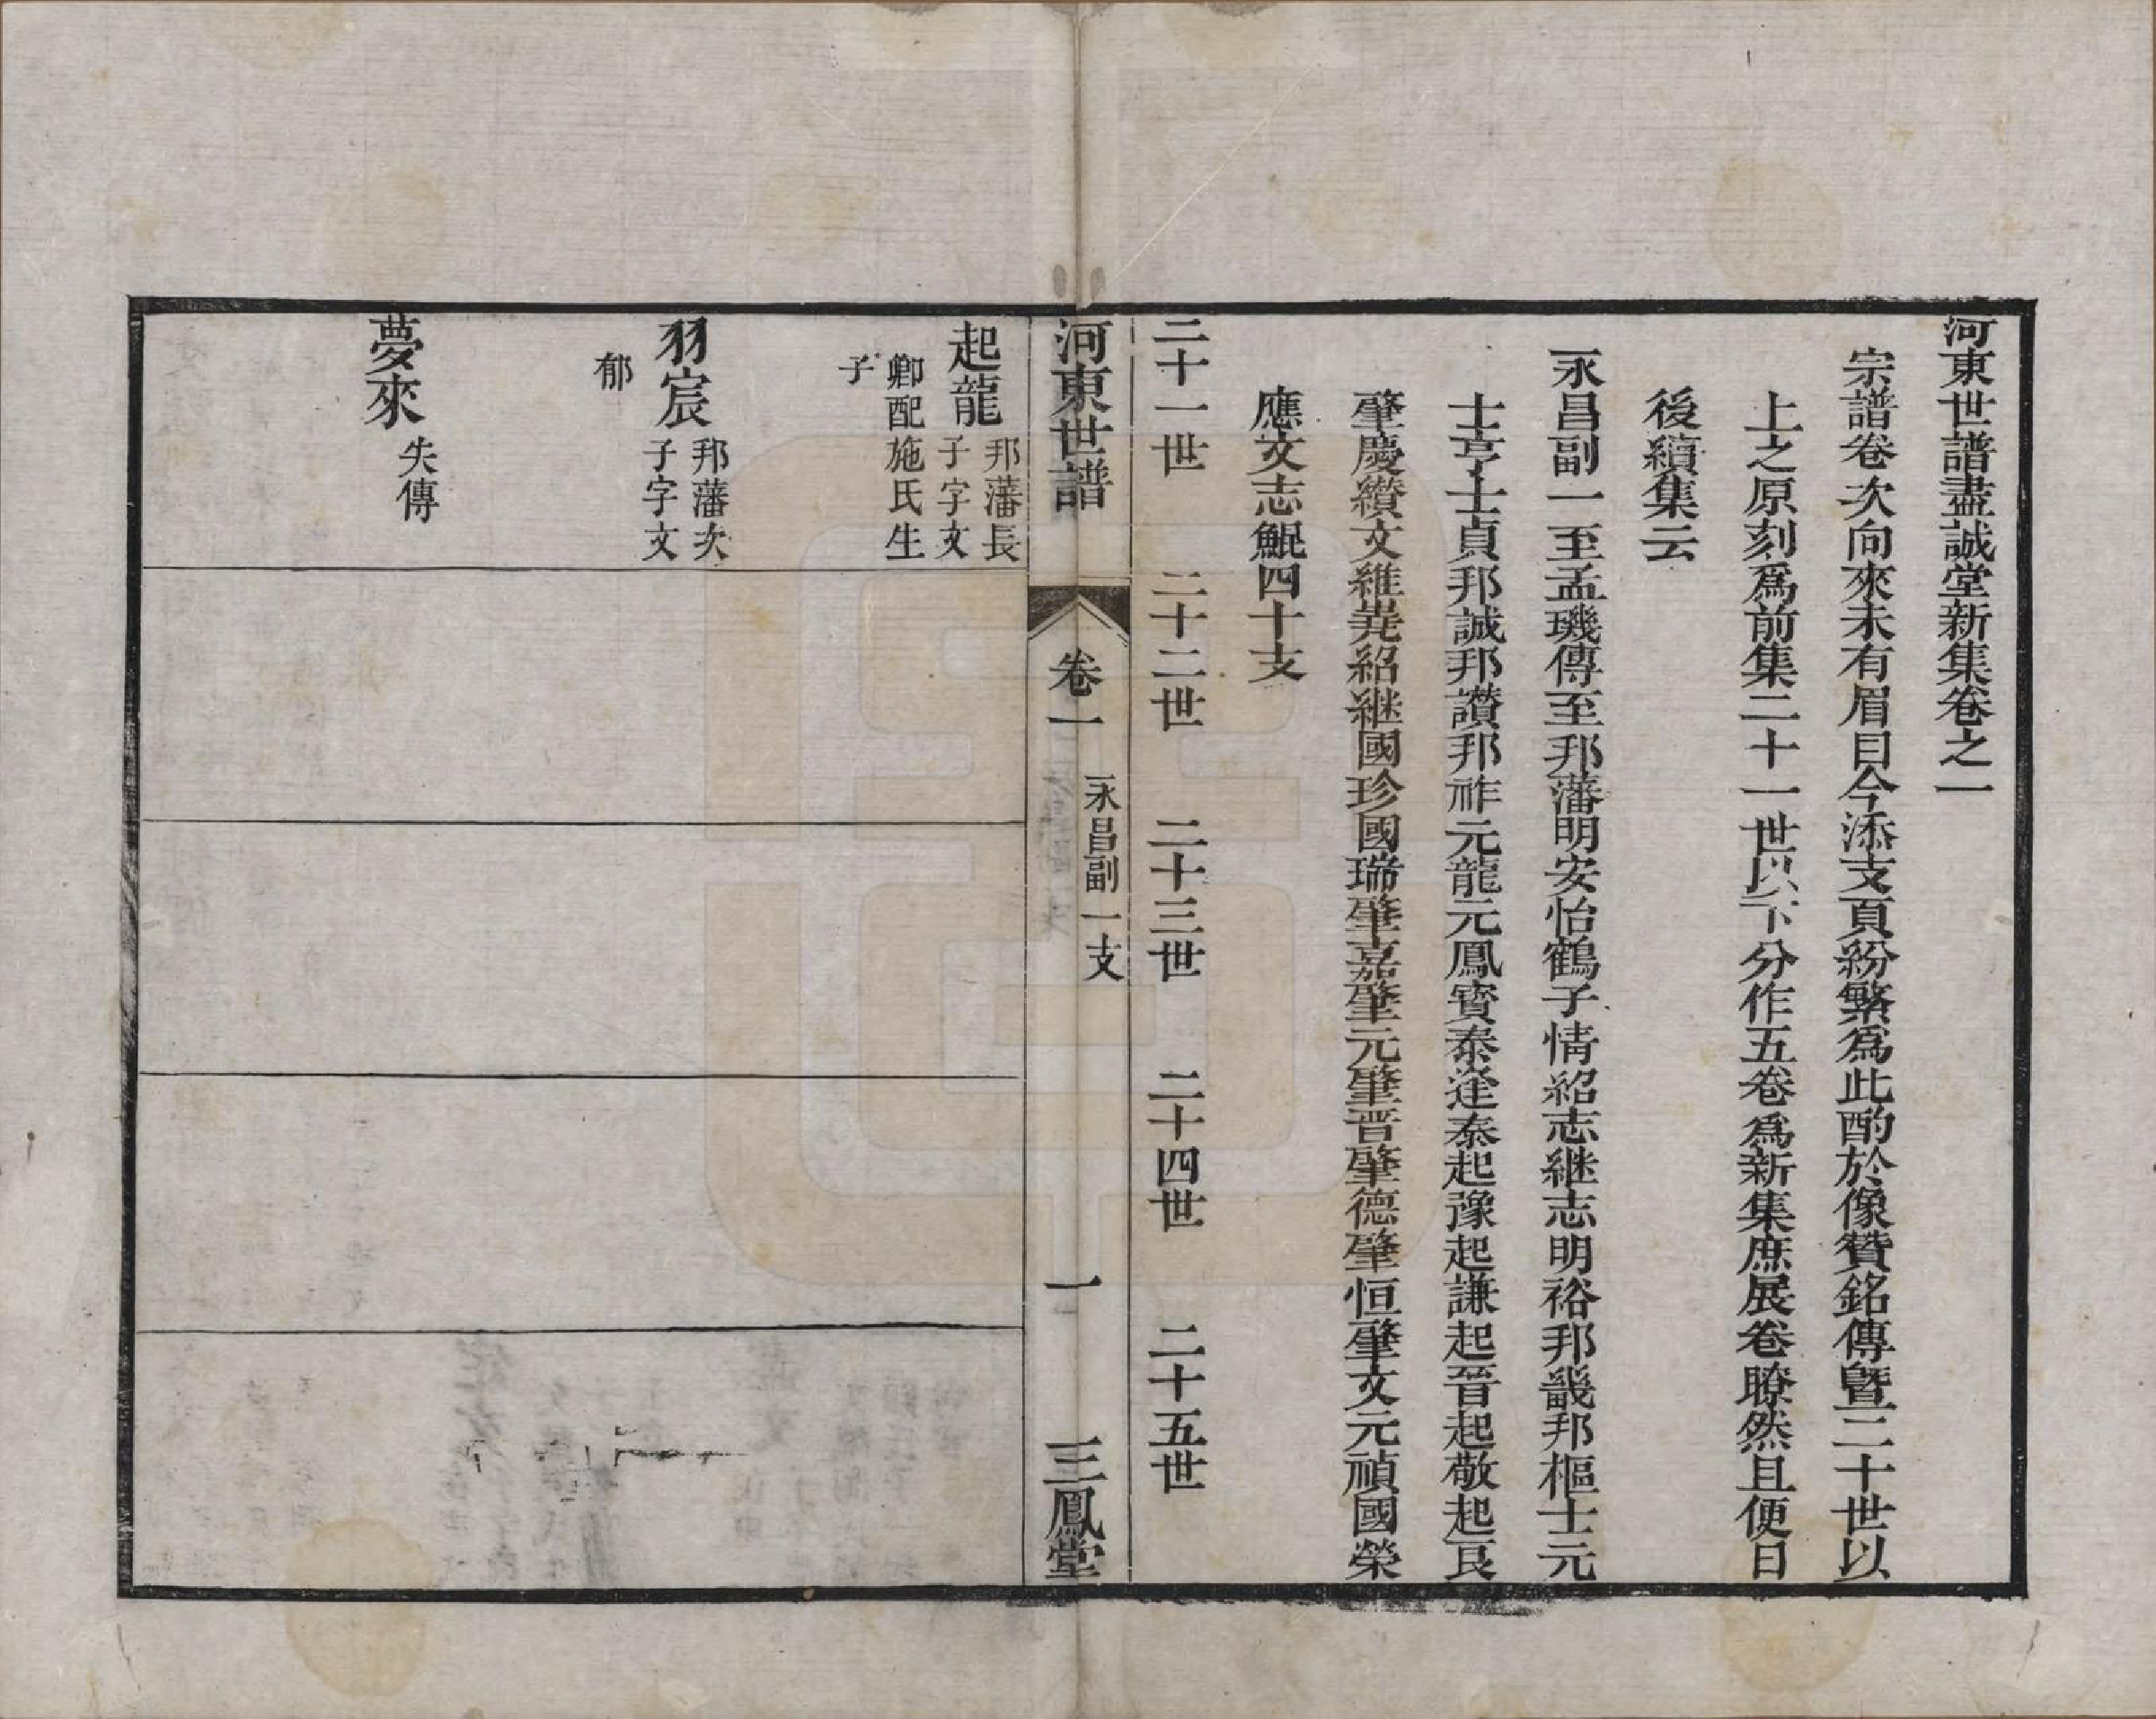 河東世譜盡誠堂新集卷之一
宗譜卷次向來未有眉目今添支頁紛繁爲此酌於像贊銘傳曁二十世以
上之原刻爲前集二十一世以下分作五卷爲新集庶展卷瞭然且便日
後續集云
永昌副一至孟璣傳至邦藩明安怡鶴子情紹志継志明裕邦畿邦樞士元
士亨士貞邦誠邦讃邦祚元龍元鳳賓泰逢泰起豫起謙起晉起敬起良
肇慶纉文維兾紹継國珍國瑞肇嘉肇元肇晋肇德肇恒肇文元禎國榮
應文志鯤四十支
二十一世 二十二世 二十三世 二十四世 二十五世
河東世譜 卷一 永昌副一支 一 三鳳堂
起龍 邦藩長
子字文
卿配施氏生
子
羽宸 邦藩次
子字文
郁
夢來 失傳